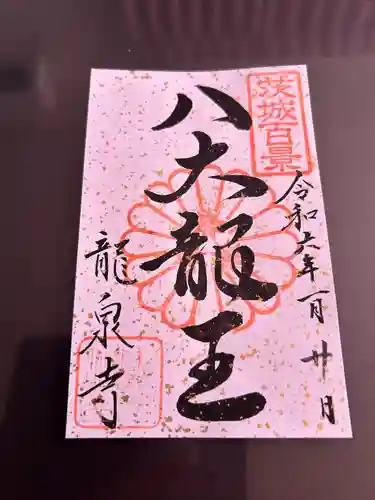 茨城百景
令和六年一月廿日
八大龍王
龍泉寺